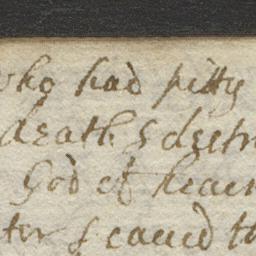 who had pitty
death & destr
God of heaue
ter I caued th